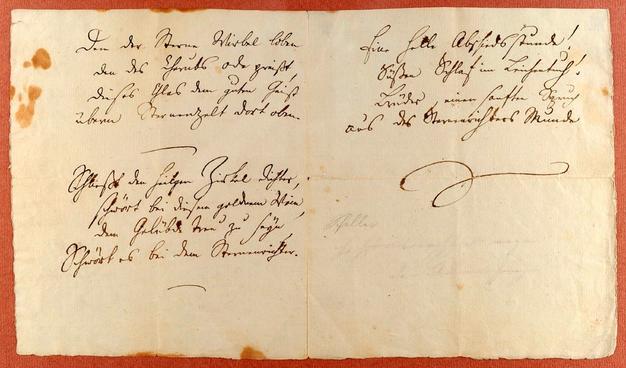 Den der Sterne Wirbel loben
den des Cherubs Ode preißt,
dieses Glas dem guten Geist
überm Sternenzelt dort oben.
Schließt den heilgen Zirkel dichter,
schwört bei diesem goldnem Wein
dem Gelübde treu zu seyn,
Schwört es bei dem Sternenrichter.
Eine helle Abschiedsstunde!
Süßen Schlaf im Leichentuch!
Brüder einen sanften Spruch
aus des Sternenrichters Munde
Schiller